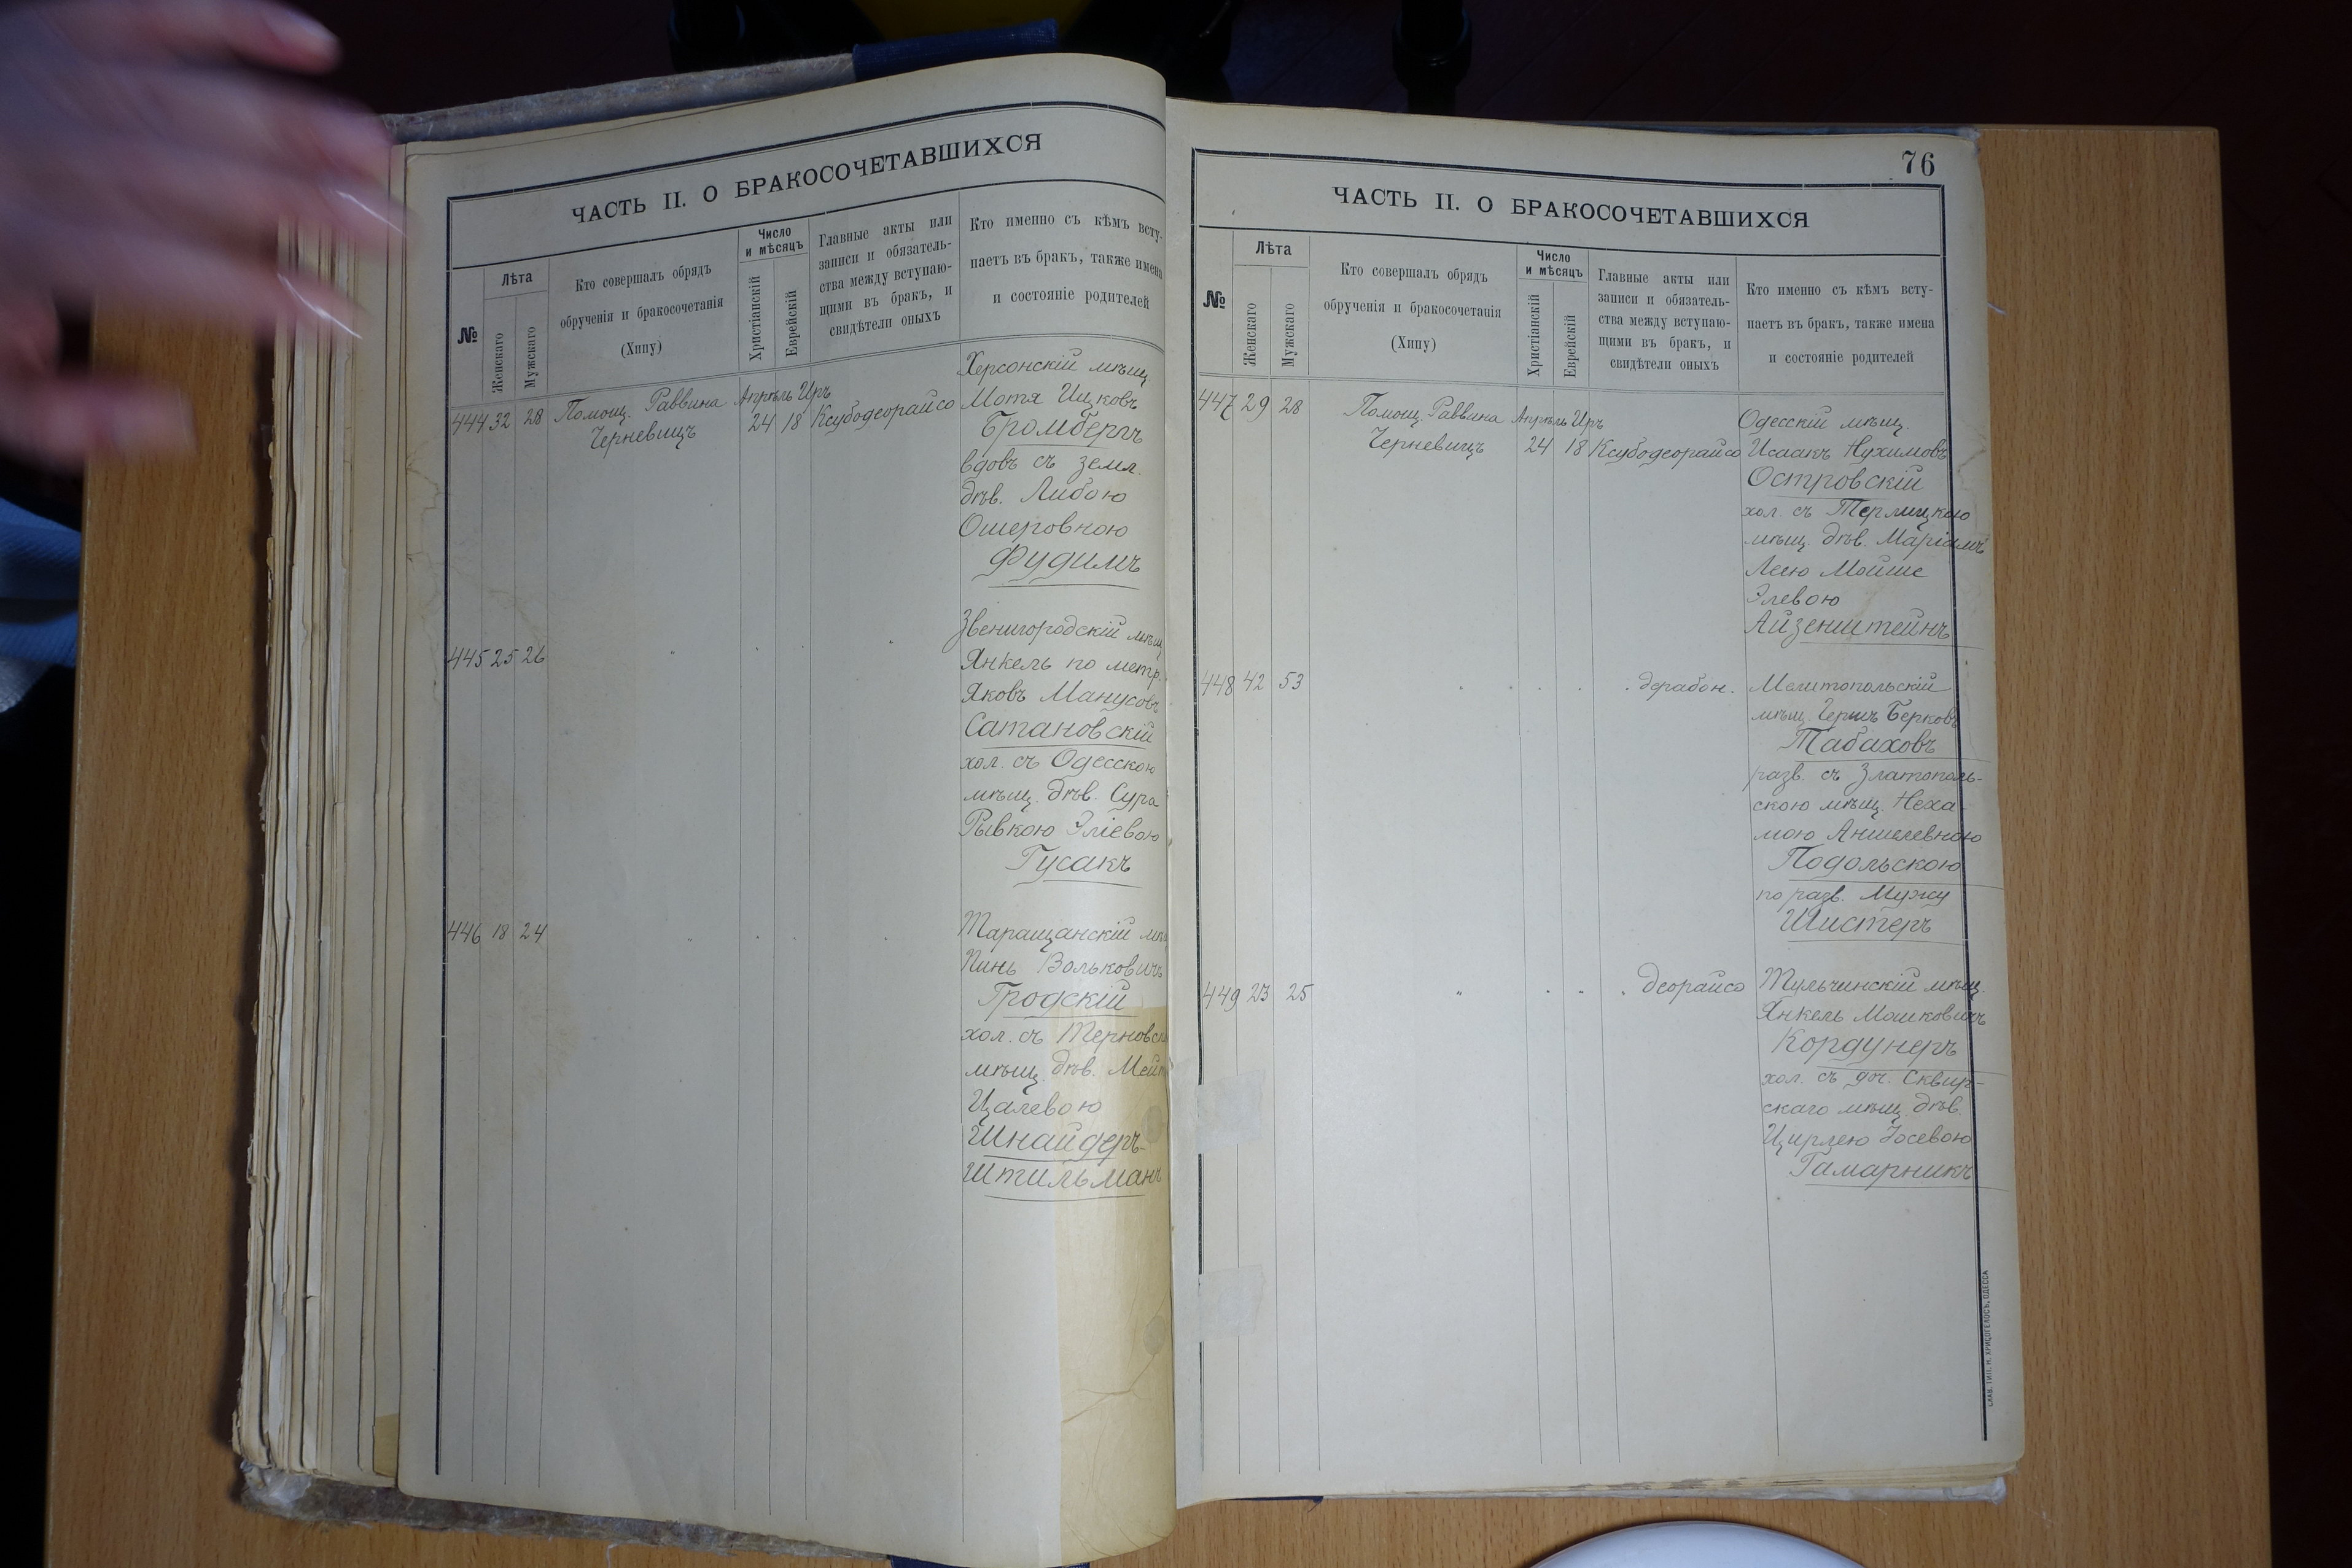 ЧАСТЬ II. О БРАКОСОЧЕТАВШИХСЯ
№
Лѣта
Женскаго
Мужскаго
Кто совершалъ обрядъ
обрученія и бракосочетанія
(Хипу)
Число
и мѣсяцъ
Христіанскій
Еврейскій
Главные акты или
записи и обязатель-
ства между вступаю-
щими въ бракъ, и
свидѣтели оныхъ
Кто именно съ кѣмъ всту-
паетъ въ бракъ, также имена
и состояніе родителей
444 32 28 Помощ. Раввина Апрѣль Иръ
Черневицъ 24 18 Ксубодеорайсо
Херсонскій мѣщ.
Мотя Ицковъ
Бромбергъ
вдовъ съ земл.
дѣв. Либою
Ошеровною
Фудимъ
445 25 26 " " " "
Звенигородскій мѣщ
Янкель по метр.
Яковъ Манусовъ
Сатановскій
хол. съ Одесскою
мѣщ. дѣв. Сура
Рывкою Эліевою
Гусакъ
446 18 24 " " " "
Таращанскій
Пинь Вольковичъ
Гродскій
хол. съ
мѣщ. дѣв.
Цалевою
Шнайдеръ-
Штильманъ
76
ЧАСТЬ II. О БРАКОСОЧЕТАВШИХСЯ
№
Лѣта
Женскаго
Мужскаго
Кто совершалъ обрядъ
обрученія и бракосочетанія
(Хипу)
Число
и мѣсяцъ
Христіанскій
Еврейскій
Главные акты или
записи и обязатель-
ства между вступаю-
щими въ бракъ, и
свидѣтели оныхъ
Кто именно съ кѣмъ всту-
паетъ въ бракъ, также имена
и состояніе родителей
447 29 28 Помощ. Раввина Апрѣль Иръ
Черневицъ 24 18 Ксубодеорайсо
Одесскій мѣщ.
Исаакъ Нухимовъ
Островскій
хол. съ Терлицкою
мѣщ. дѣв. Маріамъ
Леею Мойше
Элевою
Айзенштейнъ
448 42 53 " " " " дерабон.
Мелитопольскій
мѣщ. Гершъ Берковъ
Табаховъ
разв. съ Златополь-
скою мѣщ. Неха-
мою Аншелевною
Подольскою
по разв. мужу
Шистеръ
449 23 25 " " " " деорайсо
Тульчинскій мѣщ.
Янкель Мошковичъ
Кордунеръ
хол. съ доч. Сквир-
скаго мѣщ. дѣв.
Цирлею Іосевою
Гамарникъ
СКЛ. ТИП. Н. ХРИСОГЕЛОСЪ, ОДЕССА